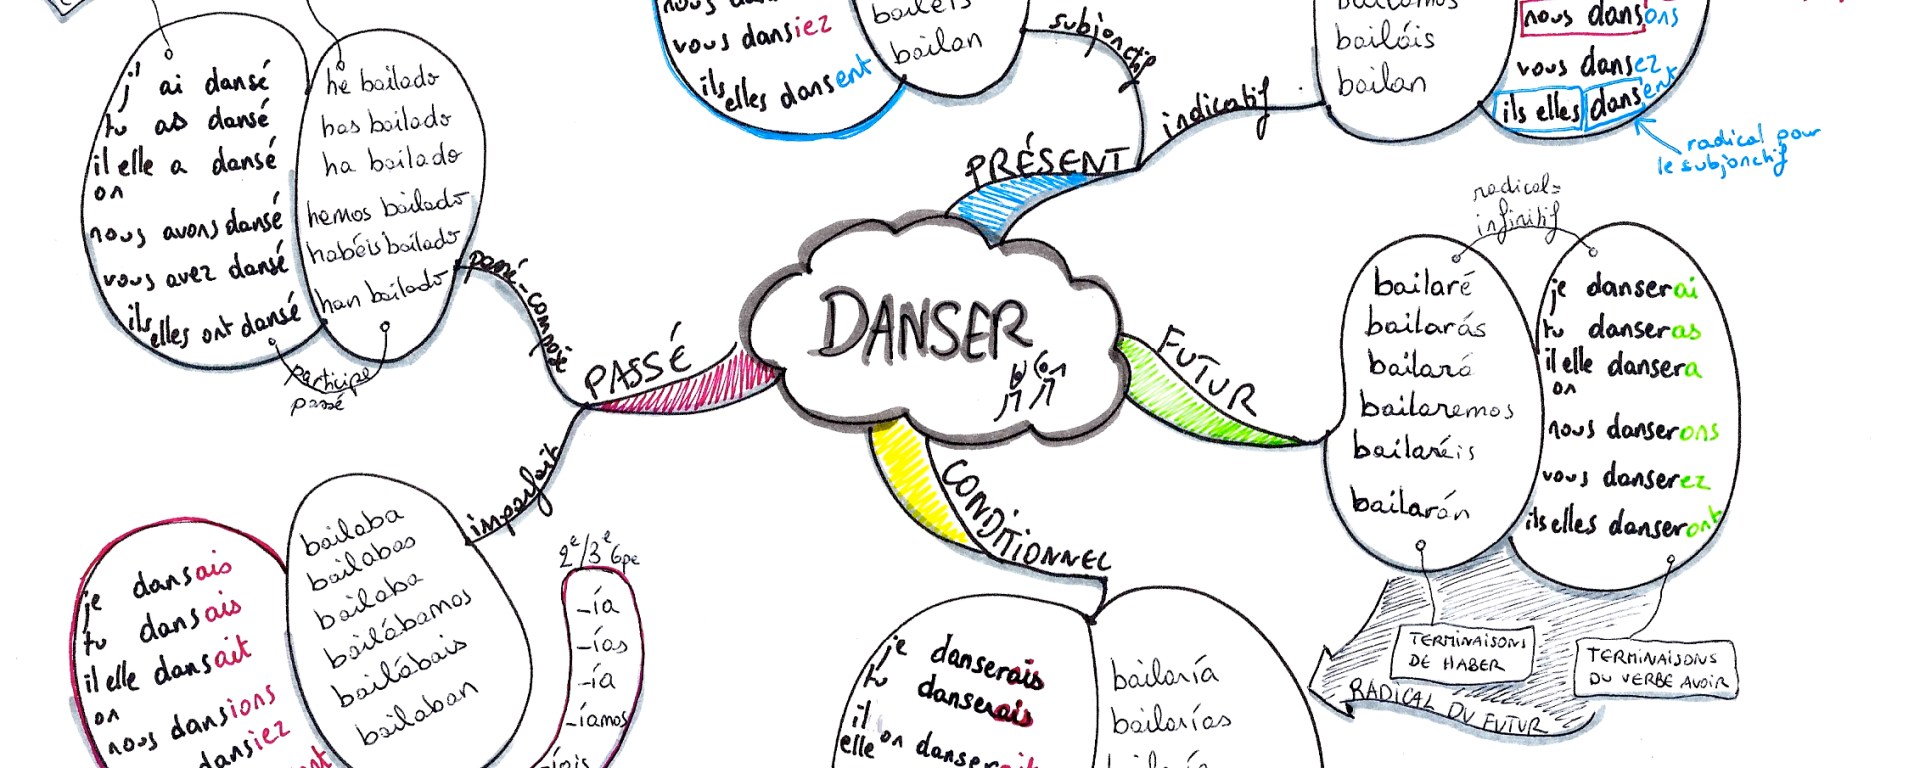 j' ai dansé
tu as dansé
il elle a dansé
on
nous avons dansé
vous avez dansé
ils elles ont dansé
he bailado
has bailado
ha bailado
hemos bailado
habéis bailado
han bailado
participe
passé
passé-composé
PASSÉ
imparfait
je dansais
tu dansais
il elle dansait
on
nous dansions
dansiez
bailaba
bailabas
bailaba
bailábamos
bailábais
bailaban
2e/3e Gpe
-ía
-ías
-ía
-íamos
vous dansiez
ils elles dansent
bailéis
bailan
subjonctif
PRÉSENT
indicatif
bailáis
bailan
nous dansons
vous dansez
ils elles dansent
radical pour
le subjonctif
DANSER
FUTUR
radical=
infinitif
bailaré
bailarás
bailará
bailaremos
bailaréis
bailarán
je danserai
tu danseras
il elle dansera
on
nous danserons
vous danserez
ils elles danseront
TERMINAISONS
DE HABER
TERMINAISONS
DU VERBE AVOIR
RADICAL DU FUTUR
CONDITIONNEL
je danserais
tu danserais
il
elle on danserait
bailaría
bailarías